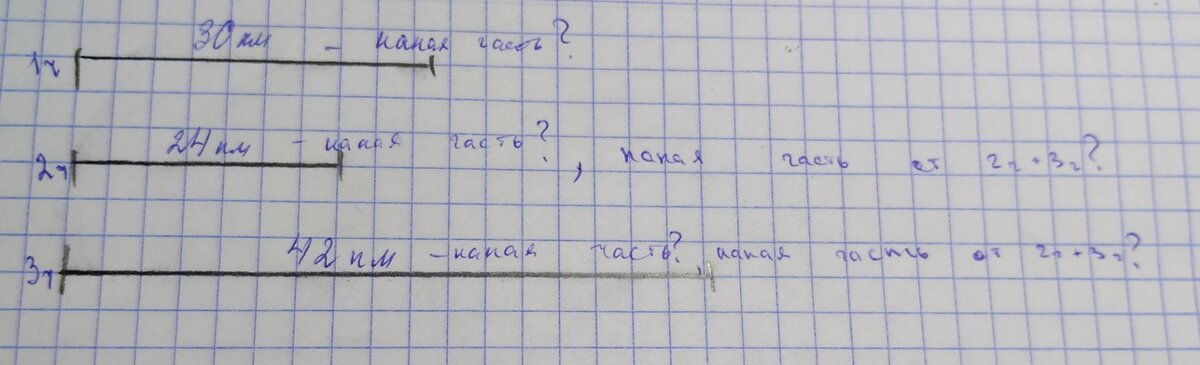 30 км – какая часть?
1ч
24 км – какая часть?, какая часть от 2ч + 3ч?
2ч
42 км – какая часть?, какая часть от 2ч + 3ч?
3ч